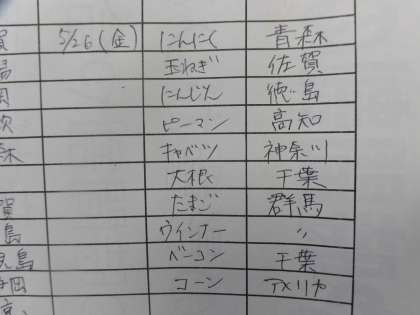 賀 5/26(金) にんにく 青森
玉ねぎ 佐賀
にんじん 徳島
ピーマン 高知
森 キャベツ 神奈川
大根 千葉
賀 たまご 群馬
島 ウインナー 〃
児島 ベーコン 千葉
岡 コーン アメリカ